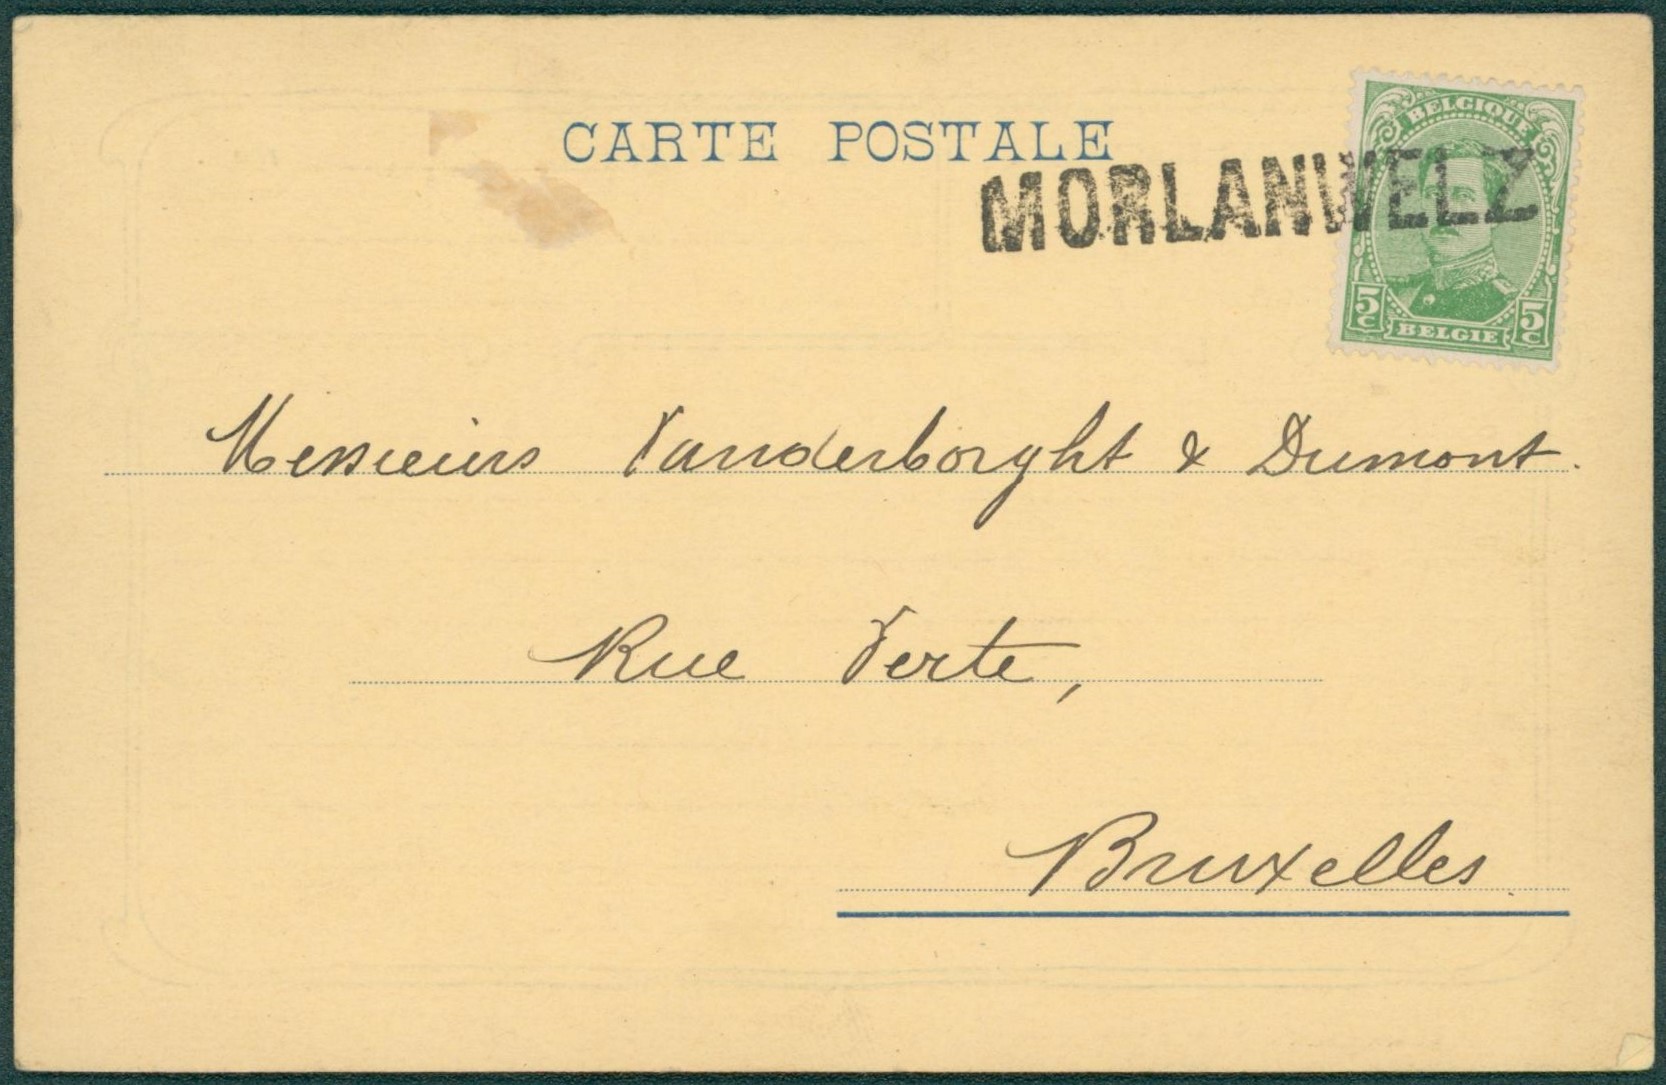 CARTE POSTALE
MORLANWELZ
BELGIQUE
5c 5c
BELGIE
Messieurs Vanderborght & Dumont.
Rue Verte,
Bruxelles.